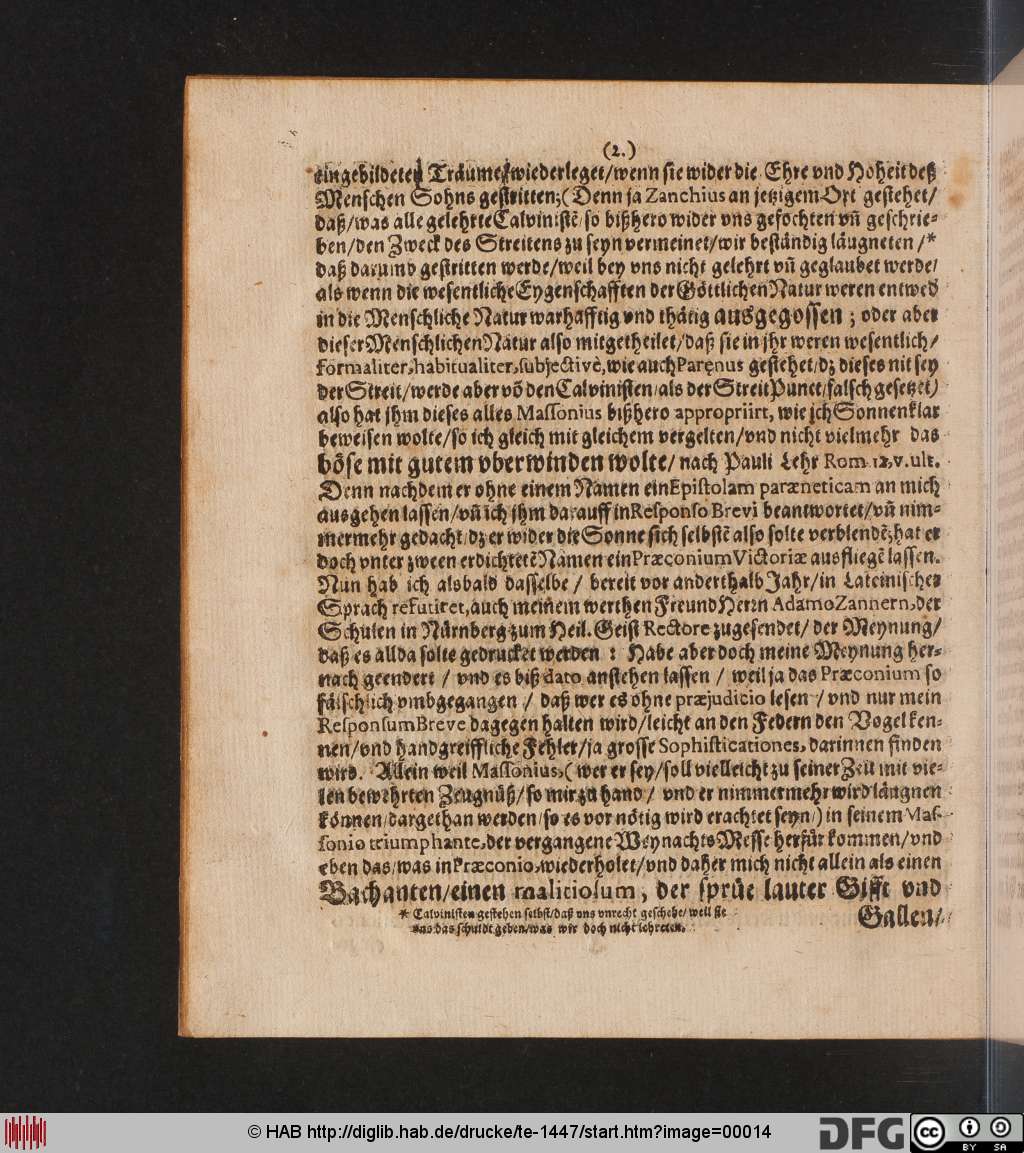 (2.)
eingebildeten Träume/wiederleget/wenn sie wider die Ehre vnd Hoheit deß
Menschen Sohns gestritten;(Denn ja Zanchius an jetzigem Ort gestehet/
daß/was alle gelehrte Calvinistẽ/so bißhero wider vns gefochten vñ geschrie-
ben/den Zweck des Streitens zu seyn vermeinet/wir beständig läugneten /*
daß darumb gestritten werde/weil bey vns nicht gelehrt vñ geglaubet werde/
als wenn die wesentliche Eygenschafften der Göttlichen Natur weren entwed
in die Menschliche Natur warhafftig vnd thätig ausgegossen ; oder aber
dieser Menschlichen Natur also mitgetheilet/daß sie in jhr weren wesentlich/
formaliter, habitualiter, subjectivè, wie auch Paręnus gestehet/dz dieses nit sey
der Streit/werde aber võ den Calvinisten/als der Streit Punct/falsch gesetzet)
also hat jhm dieses alles Massonius bißhero appropriirt, wie jch Sonnenklar
beweisen wolte/so ich gleich mit gleichem vergelten/vnd nicht vielmehr das
böse mit gutem vberwinden wolte/ nach Pauli Lehr Rom. 12, v. ult.
Denn nachdem er ohne einem Namen ein Epistolam paræneticam an mich
ausgehen lassen/vñ ich jhm darauff in Responso Brevi beantwortet/vñ nim-
mermehr gedacht/dz er wider die Sonne sich selbstẽ also solte verblendẽ; hat er
doch vnter zween erdichtetẽ Namen ein Præconium Victoriæ ausfliegẽ lassen.
Nun hab ich alsbald dasselbe / bereit vor anderthalb Jahr/in Lateinischer
Sprach refutiret, auch meinem werthen Freund Herrn Adamo Zannern, der
Schulen in Nürnberg zum Heil. Geist Rectore zugesendet/ der Meynung/
daß es allda solte gedrucket werden : Habe aber doch meine Meynung her-
nach geendert / vnd es biß dato anstehen lassen / weil ja das Præconium so
fälschlich vmbgegangen / daß wer es ohne præjudicio lesen / vnd nur mein
Responsum Breve dagegen halten wird/leicht an den Federn den Vogel ken-
nen/vnd handgreiffliche Fehler/ja grosse Sophisticationes, darinnen finden
wird. Allein weil Massonius, (wer er sey/soll vielleicht zu seiner Zeit mit vie-
len bewehrten Zeugnüß/so mir zu hand / vnd er nimmermehr wird läugnen
können/dargethan werden/so es vor nötig wird erachtet seyn/) in seinem Mas-
sonio triumphante, der vergangene Weynachts Messe herfür kommen/vnd
eben das/was in Præconio, wiederholet/vnd daher mich nicht allein als einen
Bachanten/einen malitiosum, der sprüe lauter Gifft vnd
* Calvinisten gestehen selbst/daß vns vnrecht geschehe/weil sie
vns das schuldt geben/was wir doch nicht lehreten.
Gallen/
© HAB http://diglib.hab.de/drucke/te-1447/start.htm?image=00014
DFG
cc
BY SA